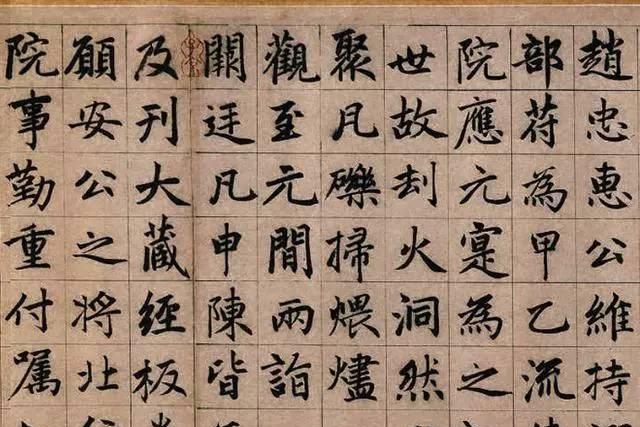 趙忠惠公維持
部苻為甲乙流
院應元寔為之
世故刦火洞然
聚瓦礫掃煨燼
觀至元間兩詣
闕廷凡申陳皆
及刊大藏經板
願安公之將北
院事勤重付嘱